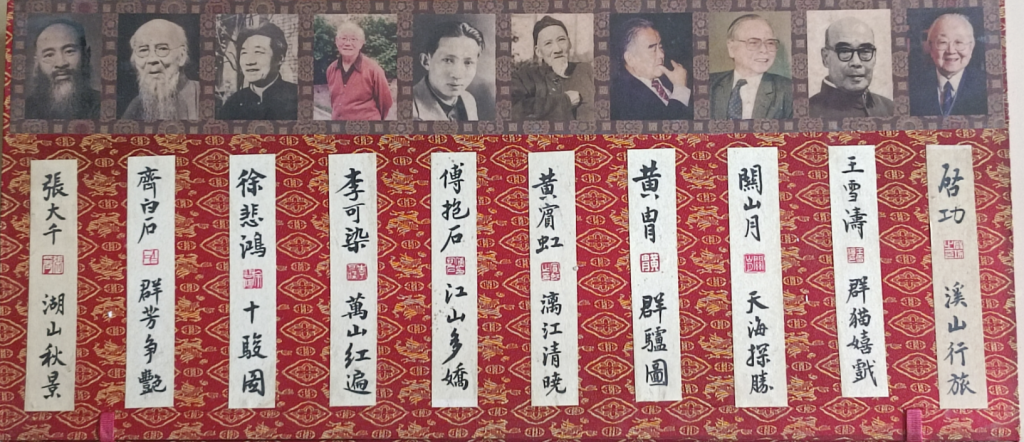 張大千 湖山秋景
齊白石 群芳争艷
徐悲鴻 十駿圖
李可染 萬山紅遍
傅抱石 江山多嬌
黃賓虹 漓江清曉
黃胄 群驢圖
關山月 天海探勝
王雪濤 群猫嬉戲
启功 溪山行旅